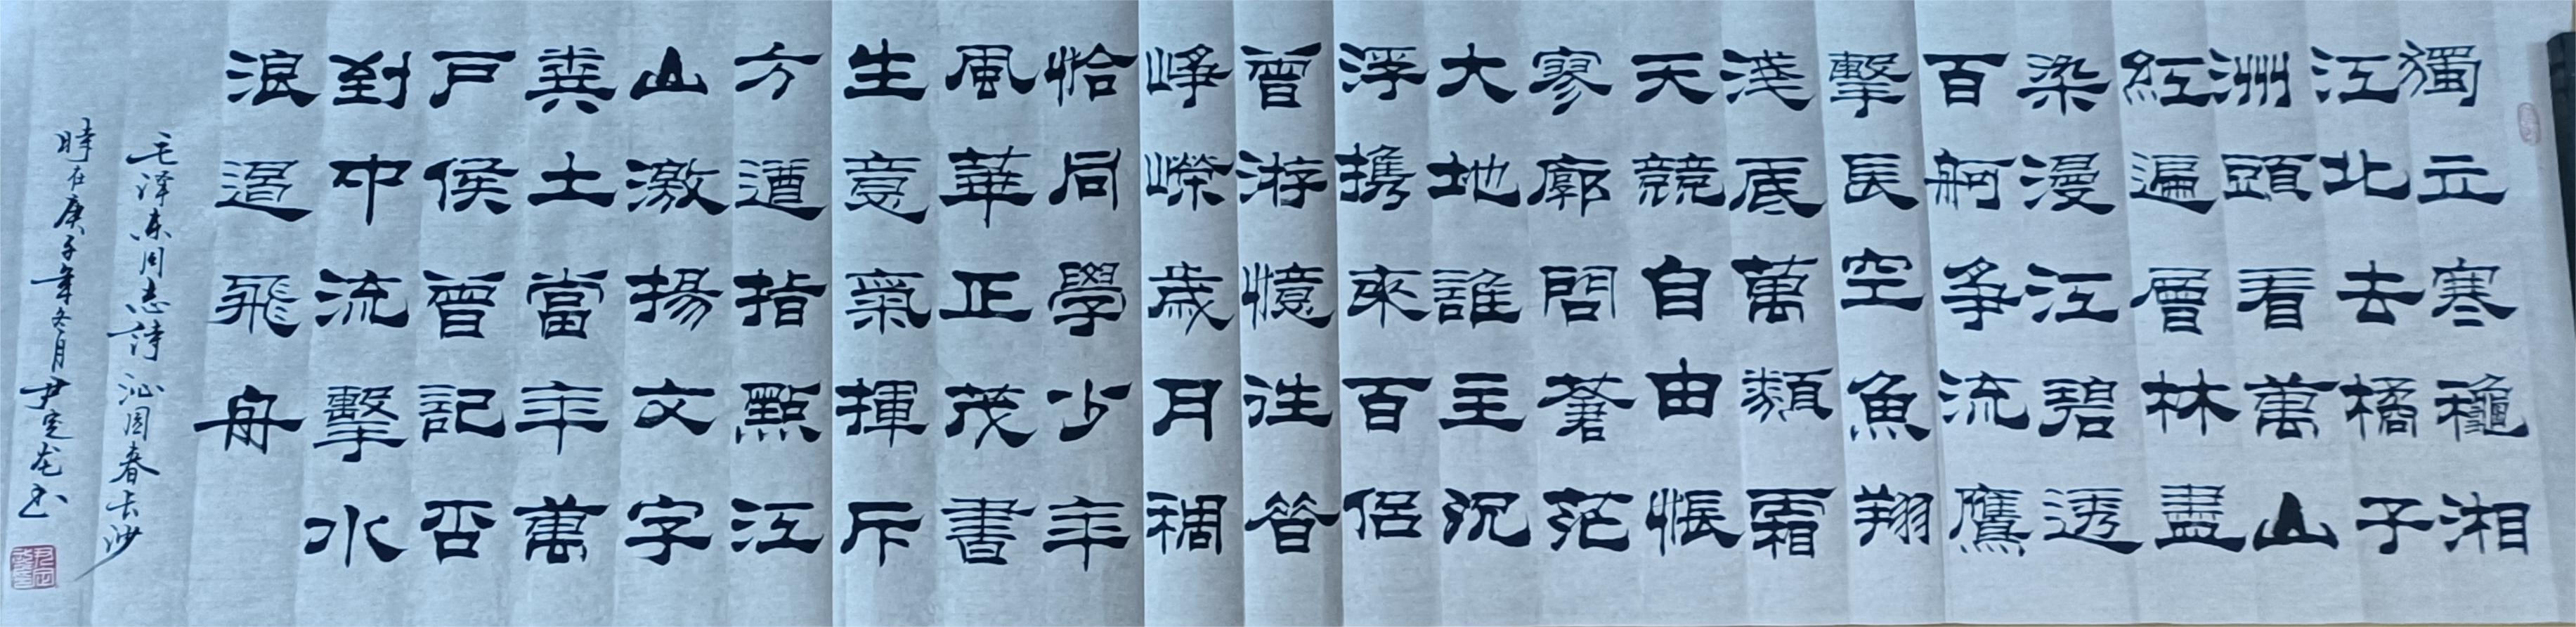 獨立寒穐湘
江北去橘子
洲頭看萬山
紅遍層林盡
染漫江碧透
百舸争流鷹
擊長空魚翔
淺底萬類霜
天競自由悵
寥廓問蒼茫
大地誰主沉
浮携來百侣
曾游憶往昔
崢嶸歲月稠
恰同學少年
風華正茂書
生意氣揮斥
方遒指點江
山激揚文字
糞土當年萬
户侯曾記否
到中流擊水
浪遏飛舟
毛泽东同志詩沁園春长沙
時在庚子年冬月尹定龙书